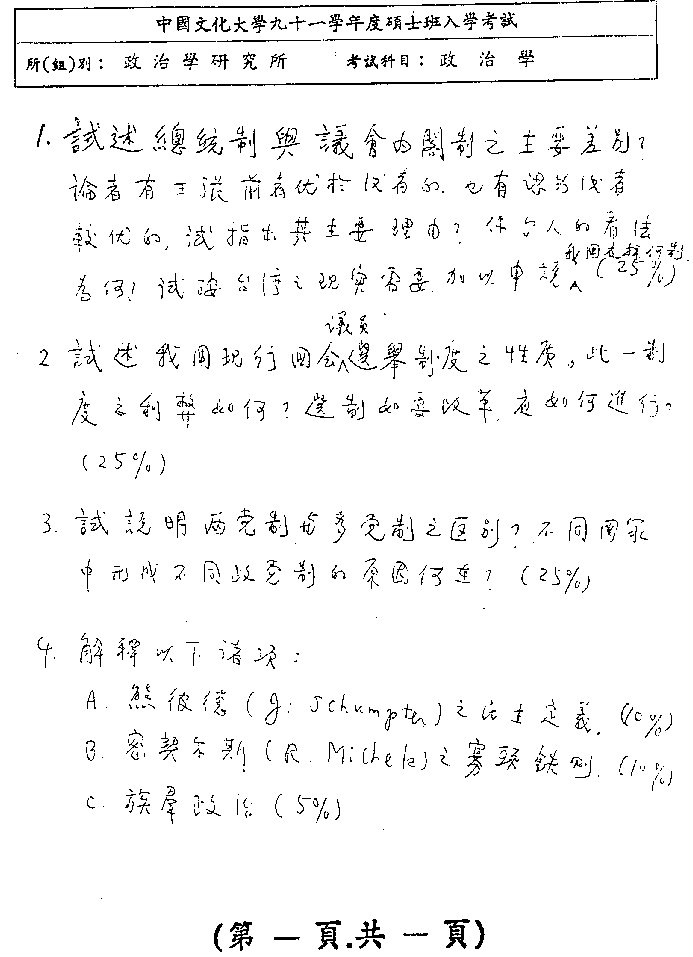 中國文化大學九十一學年度碩士班入學考試
所(組)別：政治學研究所 考試科目：政治學
1. 試述總統制與議會內閣制之主要差別？
論者有主張前者优於後者的，也有認為後者
較优的，試指出其主要理由？你个人的看法
為何？試按台湾之現實需要加以申說 (25%)
我國應採何制
議員
2 試述我国現行国会選舉制度之性质。此一制
度之利弊如何？選制如要改革，應如何進行？
(25%)
3. 試說明兩党制與多党制之区别？不同国家
中形成不同政党制的原因何在？(25%)
4. 解釋以下諸項：
A. 熊彼德 (J. Schumpter) 之民主定義. (10%)
B. 密契尔斯 (R. Michels) 之寡頭鉄則. (10%)
C. 族群政治 (5%)
(第一頁.共一頁)